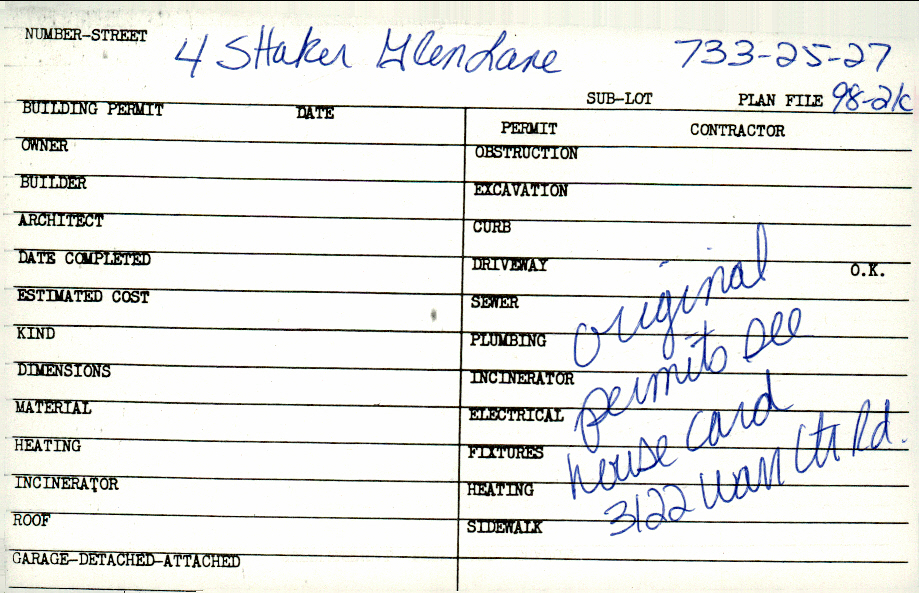 NUMBER-STREET 4 SHaker Glen Lane 733-25-27
SUB-LOT PLAN FILE 98-21c
BUILDING PERMIT DATE
PERMIT CONTRACTOR
OWNER
OBSTRUCTION
BUILDER
EXCAVATION
ARCHITECT
CURB
DATE COMPLETED
DRIVEWAY O.K.
ESTIMATED COST
SEWER
KIND
PLUMBING
DIMENSIONS
INCINERATOR
MATERIAL
ELECTRICAL
HEATING
FIXTURES
INCINERATOR
HEATING
ROOF
SIDEWALK
GARAGE-DETACHED-ATTACHED
original
permits see
house card
3122 Warr Ctr Rd.